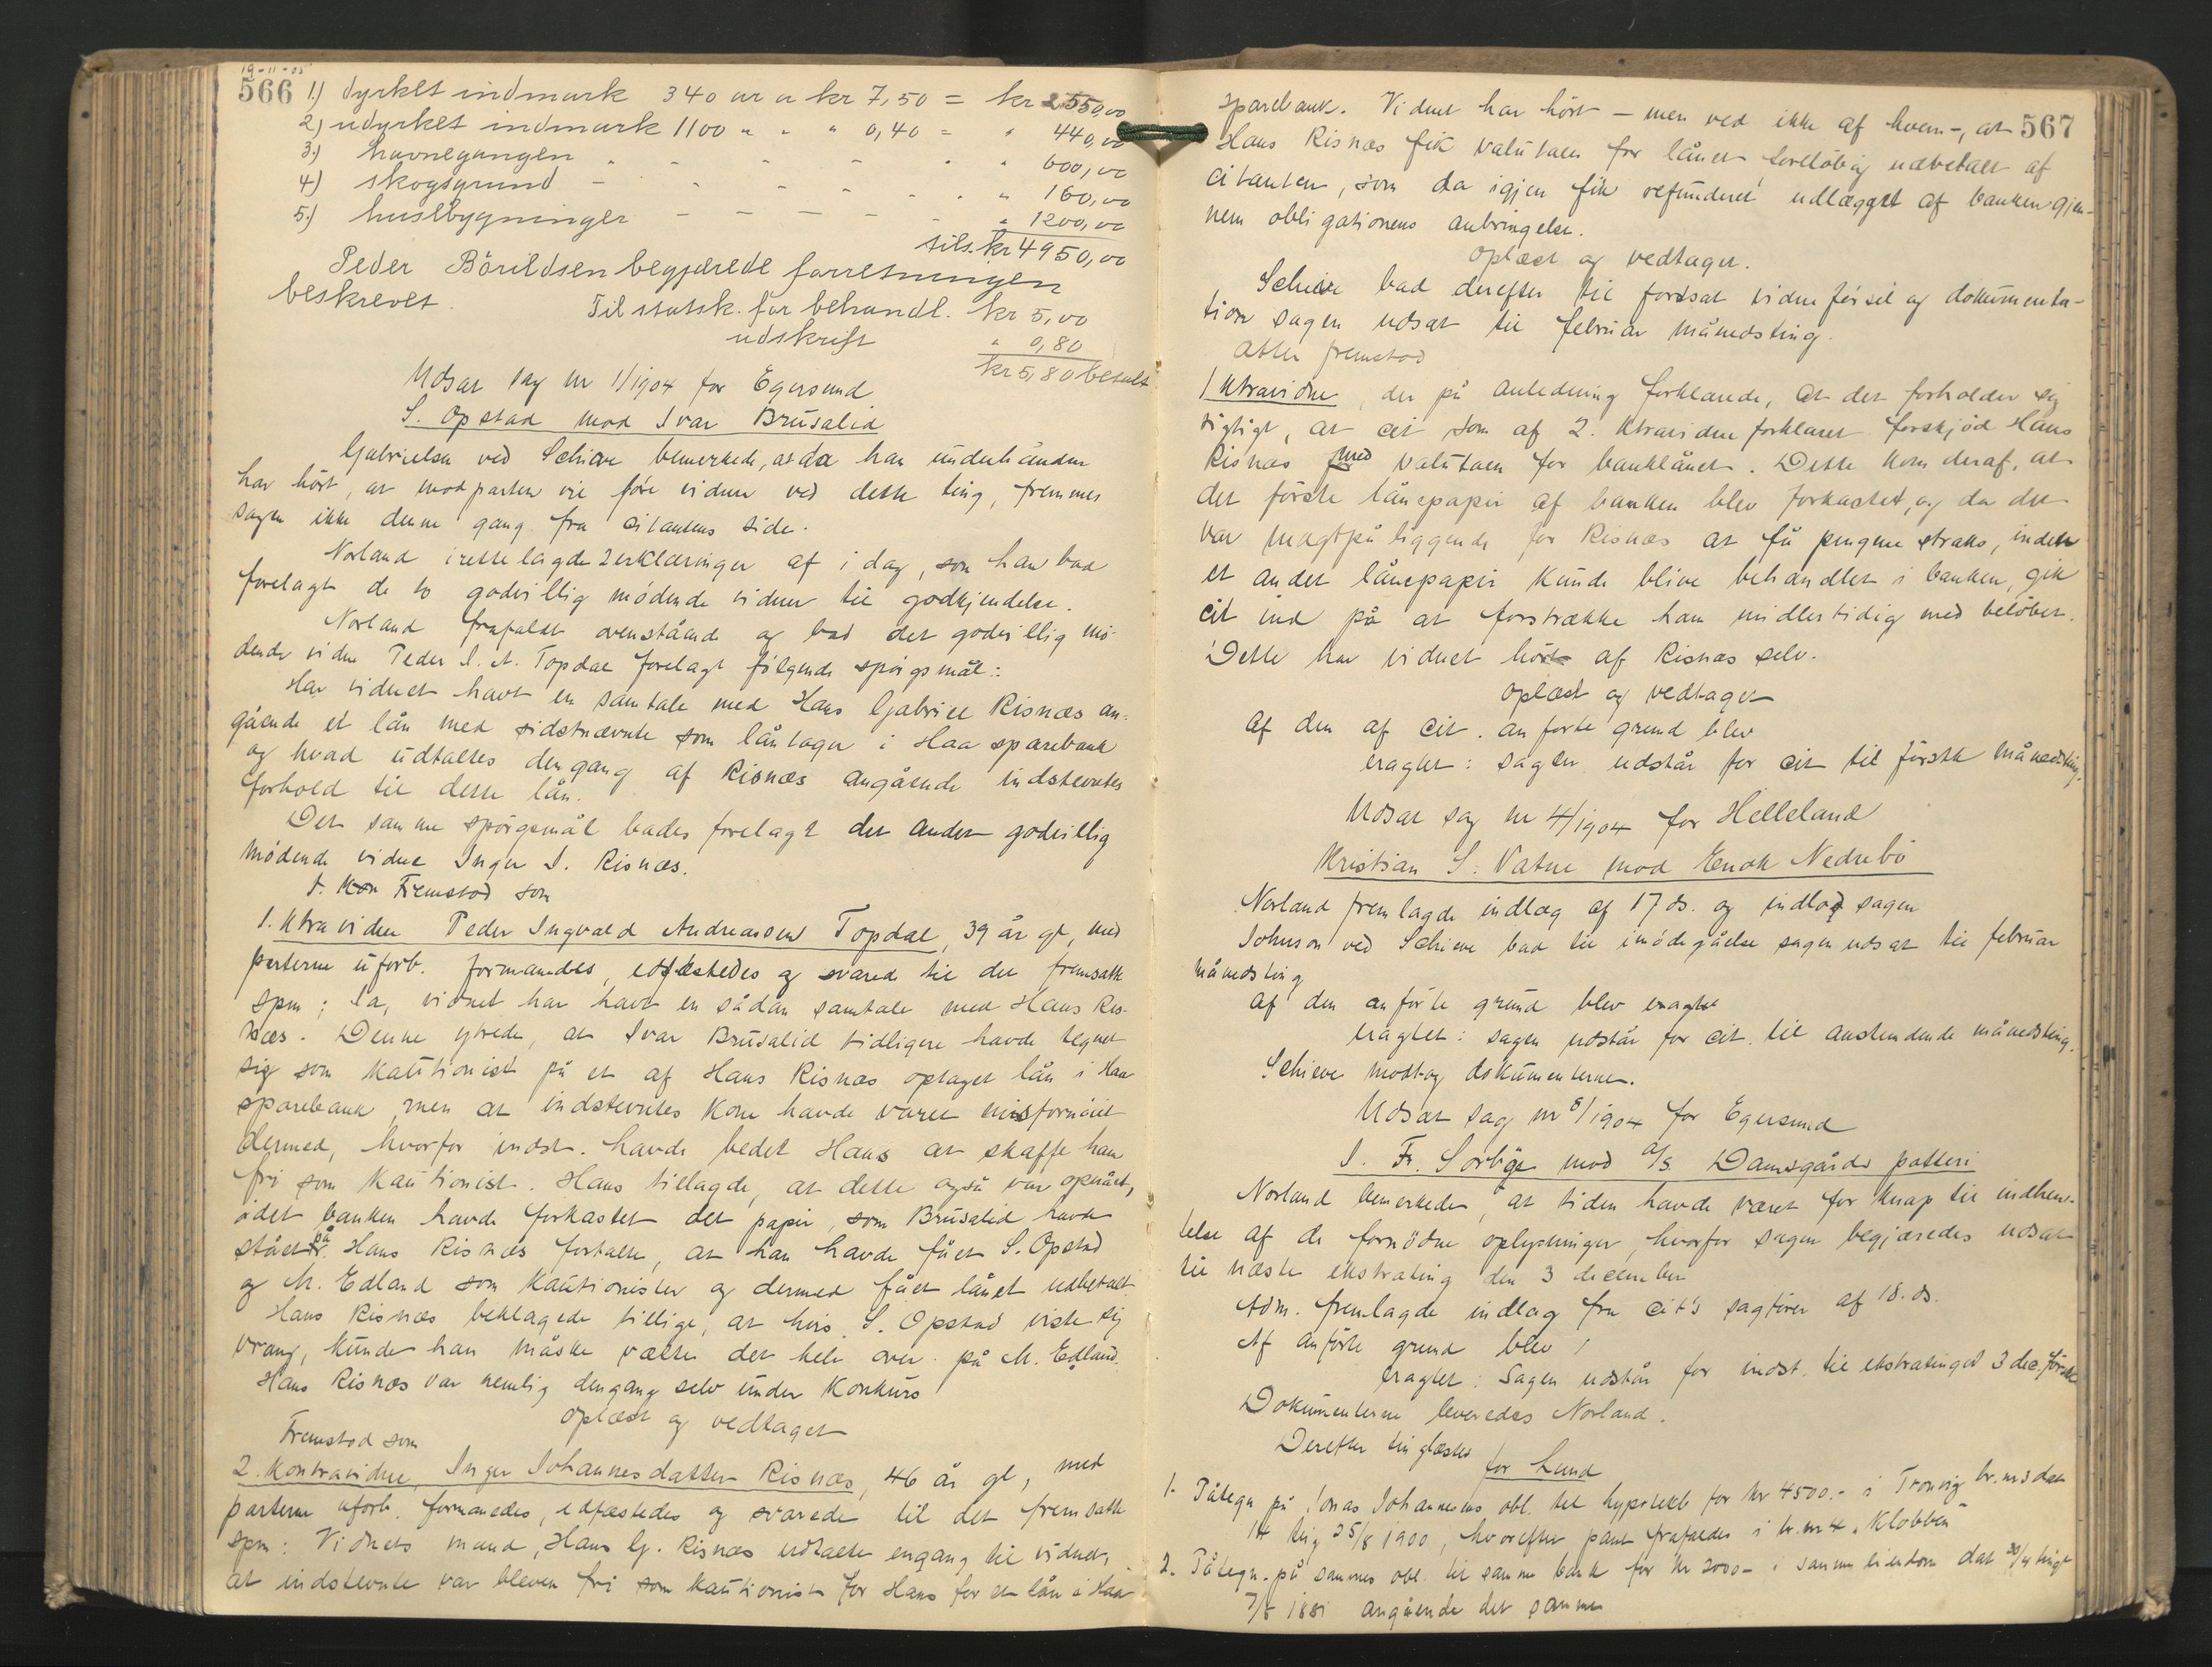 19-11-05
566
1) dyrket indmark 340 ar a kr 7,50 = kr 2550,00
2) udyrket indmark 1100 " " " 0,40 = " 440,00
3) havnegangen " - - - " " 600,00
4) skogsgrund - - - - - " " 160,00
5) husebygninger - - - - - " 1200,00
tils. kr 4950,00
Peder Börildsen begjærede forretningen
beskrevet.
Til statsk. for behandl. kr 5,00
udskrift " 0,80
kr 5,80 betalt
Udsat sag nr 1/1904 for Egersund
S. Opstad mod Ivar Brusalid
Gabrielsen ved Schiøve bemerkede, at da han underhånden
har hört, at modparten vil före vidner ved dette ting, fremmes
sagen ikke denne gang fra citantens side.
Norland irettelagde 2 erklæringer af i dag, som han bad
forelagt de to godvillig mödende vidner til godkjendelse.
Norland frafaldt ovenstående og bad det godvillig mö-
dende vidne Peder I. A. Topdal forelagt fölgende spörgsmål:
Har vidnet havt en samtale med Hans Gabriel Risnæs an-
gående et lån med sidstnævnte som låntager i Haa sparebank
og hvad udtaltes dengang af Risnæs angående indstevntes
forhold til dette lån.
Det samme spörgsmål bades forelagt det andet godvillig
mödende vidne Inger I. Risnæs.
Fremstod som
1. Ktra vidne Peder Ingvald Andreassen Topdal, 39 år gl, med
parterne uforb. formanedes, edfæstedes og svared til det fremsatte
spm; Ja, vidnet har havt en sådan samtale med Hans Ris-
næs. Denne ytrede, at Ivar Brusalid tidligere havde tegnet
sig som kautionist på et af Hans Risnæs optaget lån i Haa
sparebank, men at indstevntes kone havde været misfornöiet
dermed, hvorfor indst. havde bedet Hans at skaffe ham
fri som kautionist. Hans tillagde, at dette også var opnået,
idet banken havde forkastet det papir, som Brusalid havde
stået på. Hans Risnæs fortalte, at han havde fået S. Opstad
og M. Edland som kautionister og dermed fået lånet udbetalt.
Hans Risnæs beklagede tillige, at hvis S. Opstad viste sig
vrang, kunde han måske vælte det hele over på M. Edland.
Hans Risnæs var nemlig dengang selv under konkurs
Oplæst og vedtaget
Fremstod som
2. Kontravidne, Inger Johannesdatter Risnæs, 46 år gl, med
parterne uforb. formanedes, edfæstedes og svarede til det fremsatte
spm: Vidnets mand, Hans G. Risnæs udtalte engang til vidnet,
at indstevnte var bleven fri som kautionist for Hans for et lån i Haa
567
sparebank. Vidnet har hört - men ved ikke af hvem -, at
Hans Risnæs fik valutaen for lånet forelöbig udbetalt af
citanten, som da igjen fik refunderet udlægget af banken gjen-
nem obligationens anbringelse.
Oplæst og vedtaget.
Schiøve bad derefter til fortsat vidneförsel og dokumenta-
tion sagen udsat til februar månedsting.
Atter fremstod
1 Ktravidne, der på anledning forklarede, at det forholder sig
rigtigt, at cit som af 2. Ktravidne forklaret forskjöd Hans
Risnæs med valutaen for banklånet. Dette kom deraf, at
det förste lånepapir af banken blev forkastet, og da det
var magtpåliggende for Risnæs at få pengene straks, inden
et andet lånepapir kunde blive behandlet i banken, gik
cit ind på at forstrække ham midlertidig med belöbet.
Dette har vidnet hört af Risnæs selv.
Oplæst og vedtaget
Af den af cit. anförte grund blev
eragtet: sagen udstår for cit til förste månedsting.
Udsat sag nr 4/1904 for Helleland
Kristian S. Vatne mod Enok Nedrebö
Norland fremlagde indlæg af 17 ds. og indlod sagen
Johnson ved Schiøve bad til imödegåelse sagen udsat til februar
månedsting
Af den anförte grund blev eragtet
eragtet: sagen udstår for cit. til anstundende månedsting.
Schiøve modtog dokumenterne.
Udsat sag nr 8/1904 for Egersund
I. Fr. Sorböe mod A/S Damsgårds potteri
Norland bemerkede, at tiden havde været for knap til indhen-
telse af de fornödne oplysninger, hvorfor sagen begjæredes udsat
til næste ekstrating den 3 december
Adm. fremlagde indlæg fra cit's sagförer af 18. ds.
Af anförte grund blev
eragtet: Sagen udstår for indst. til ekstratinget 3 dec. förstk
Dokumenterne leveredes Norland.
Derefter tinglæstes
for Lund
1. Påtegn på Jonas Johannesens obl. til hypotekb for kr 4500.- i Tronvig br. nr 3 dat
14 tingl 25/8 1900, hvorefter pant frafaldes i br. nr 4 "Klobben"
2. Påtegn. på sammes obl. til samme bank for kr 2000- i samme eiendom dat 30/4 tingl
7/5 1881 angående det samme